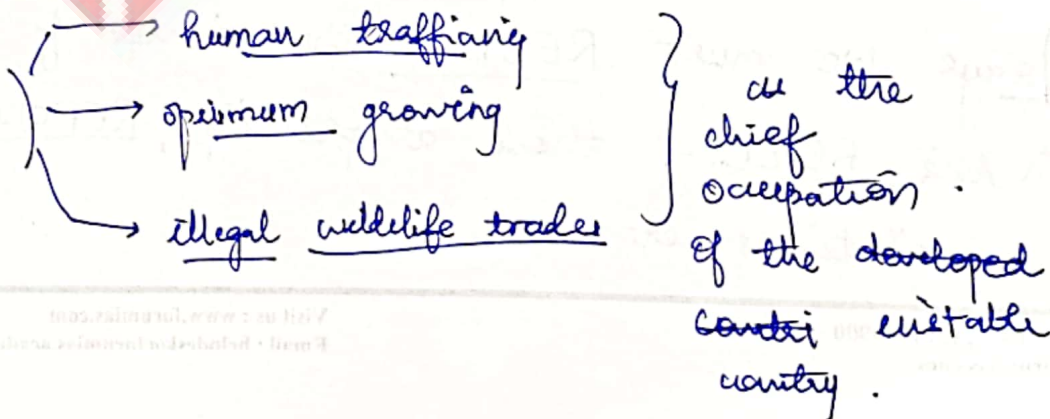 human traffiang
opeimum growing
illegal wildelife trades
as the
chief
ocupation.
of the developed
contri unstable
country.